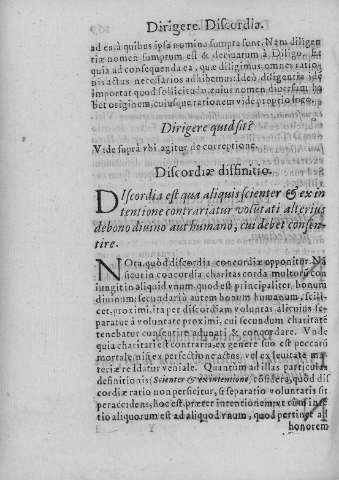 Dirigere. Discordiæ.
ad ea, à quibus ipsa nomina sumpta sunt. Nam diligen
tiæ nomen sumptum est & deriuatum à Diligo. Et
quia ad consequenda ea, quæ diligimus, omnes ratio
nis actus necessarios adhibemus: Ideò diligentia idē
importat quod sollicitudo, cuius nomen diuersam ha
bet originem, cuiusque rationem vide proprio loco.
Dirigere quid sit?
Vide suprà vbi agitur de correptione.
Discordiæ diffinitio.
DIscordia est qua aliquis scienter & ex in
tentione contrariatur volūtati alterius
debono diuino aut humano, cui debet consen-
tire.
NOta, quòd discordia concordiæ opponitur. Nā
sicuti concordia charitas corda multorū con
iungit in aliquid vnum, quod est principaliter, bonum
diuinum; secundariò autem bonum humanum, scili
cet, proximi, ita per discordiam voluntas alicuius se-
paratur à voluntate proximi, cui secundum charitatē
tenebatur consentire adunari & concordare. Vnde
quia charitati est contraria, ex genere suo est peccatū
mortale, nisi ex perfectione actus, vel ex leuitate ma-
teriæ reddatur veniale. Quantum ad illas particulas
definitionis: Scienter & ex intentione, considera, quòd dis
cordiæ ratio non perficitur, si separatio voluntatis sit
per accidens, hoc est præter intentionem, vt cum inten
tio aliquorum est ad aliquod vnum, quod pertinet ad
honorem